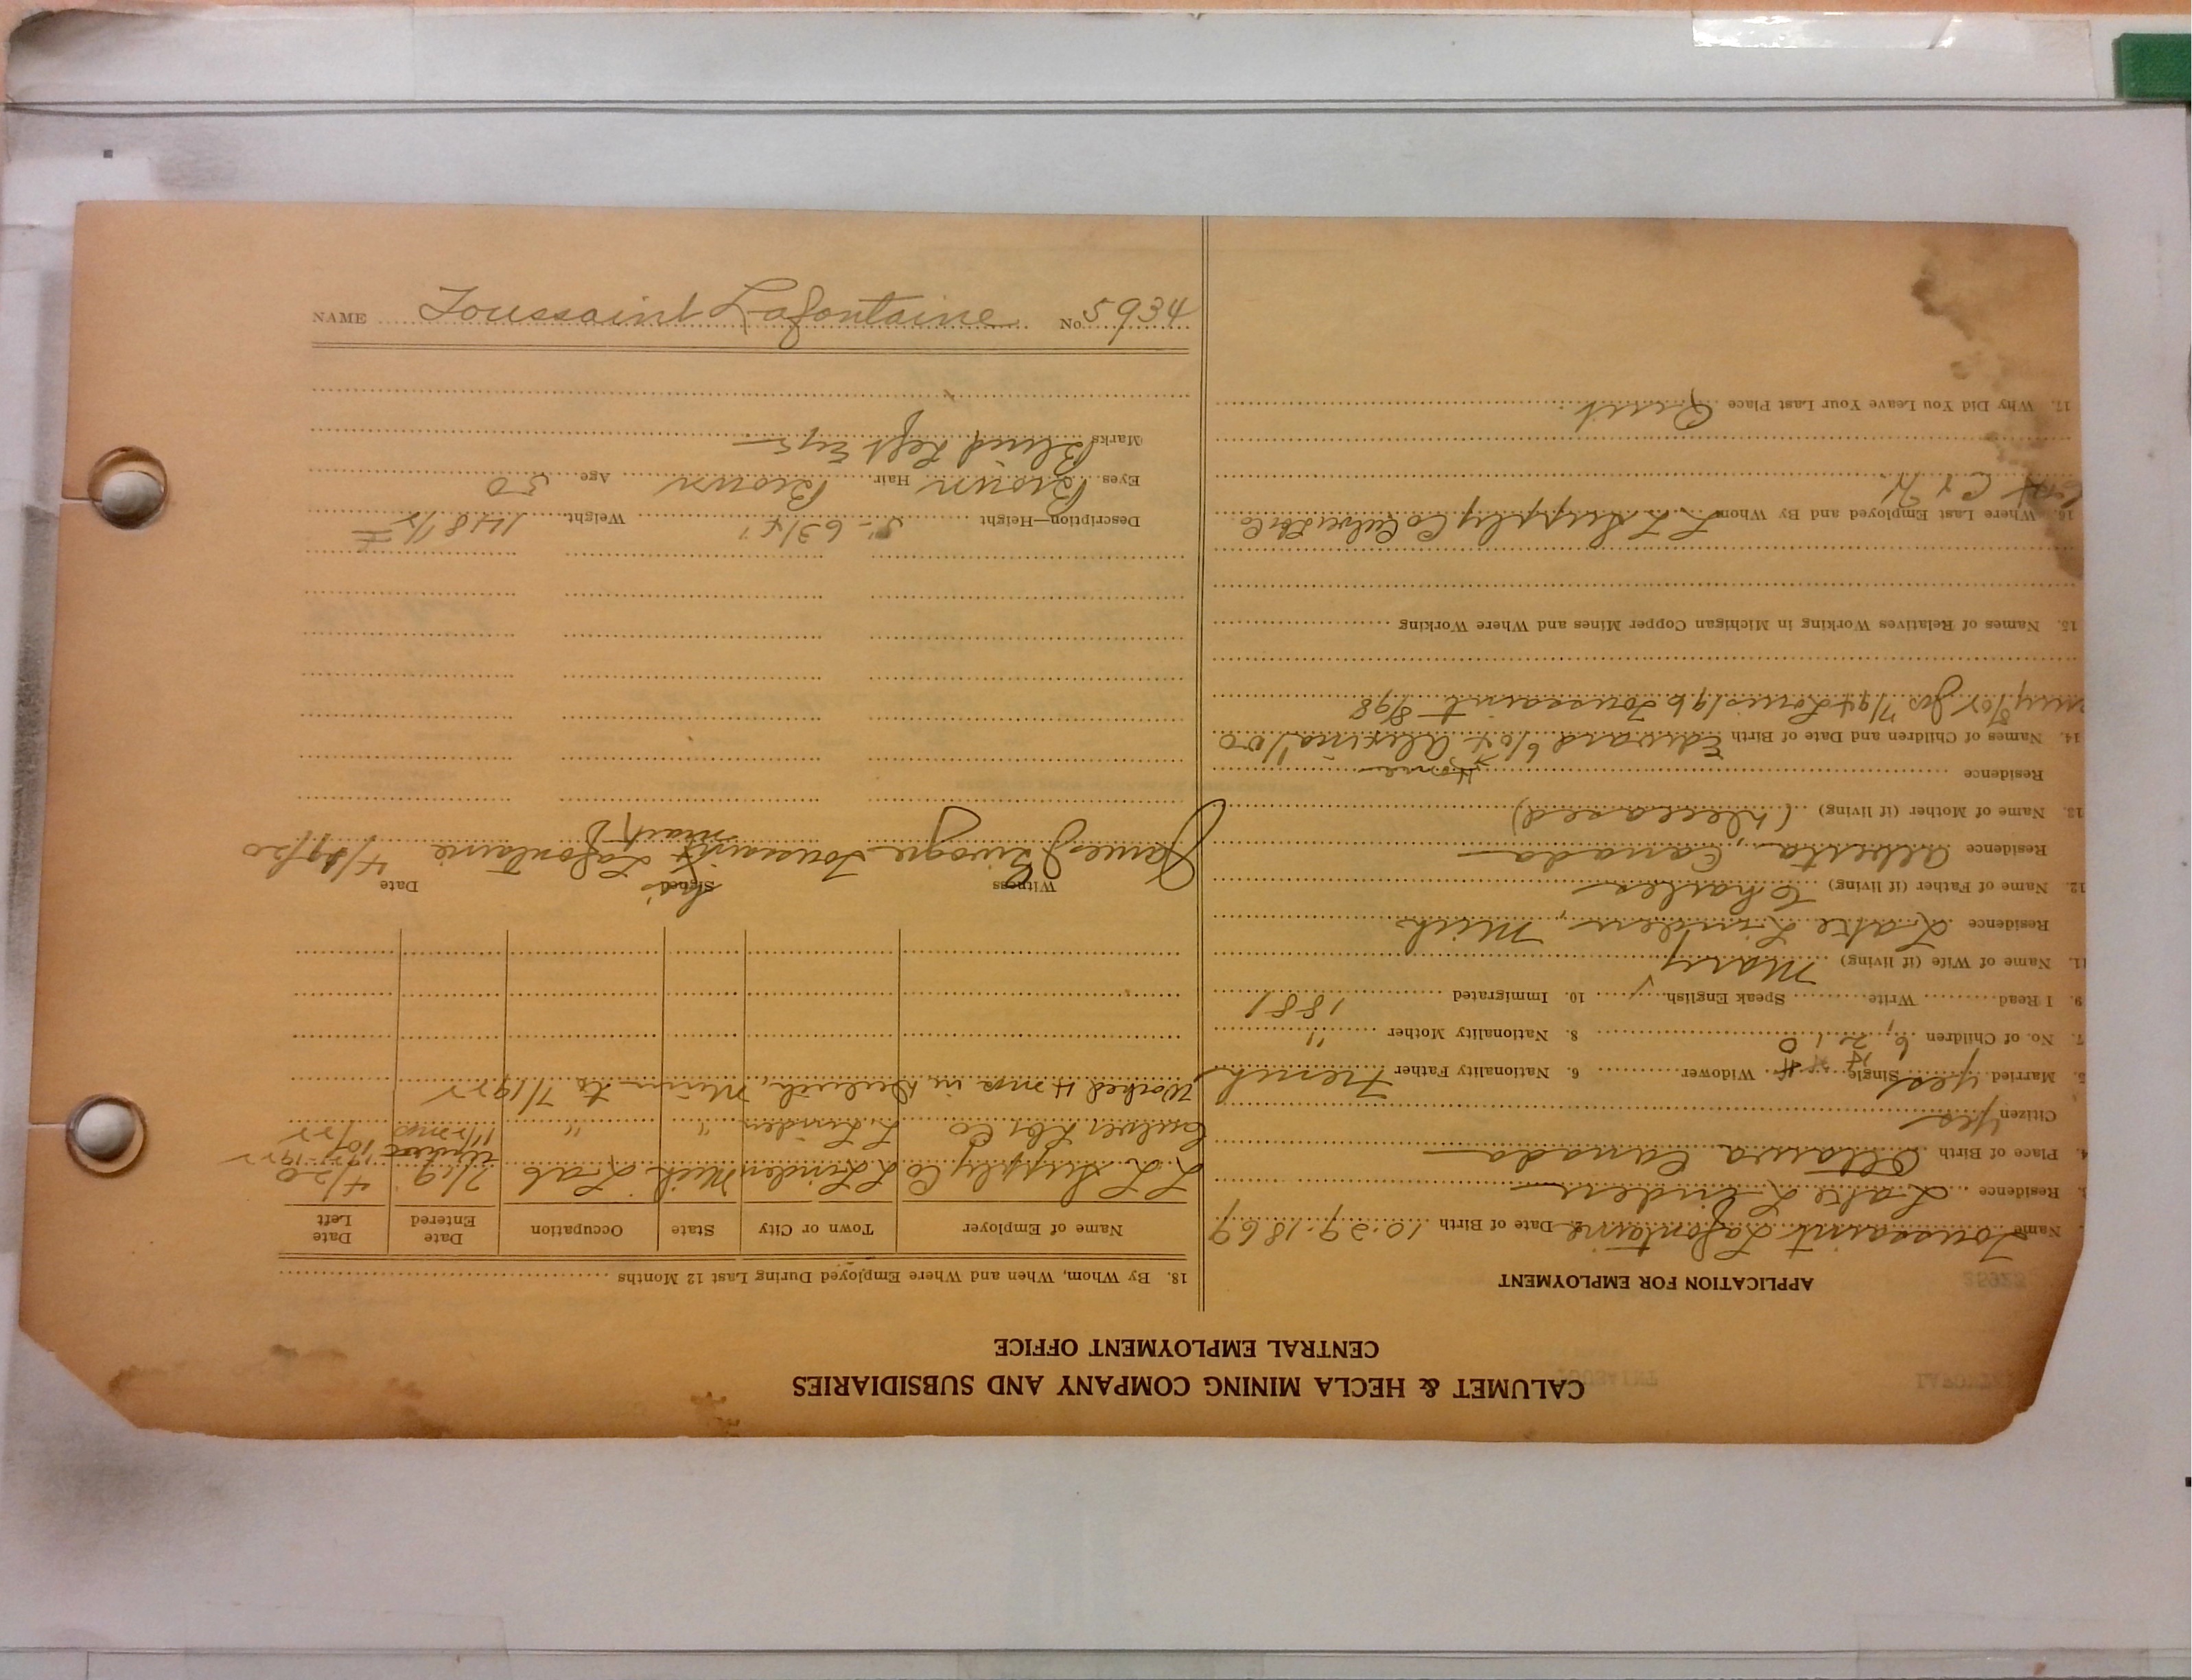 CALUMET & HECLA MINING COMPANY AND SUBSIDIARIES
CENTRAL EMPLOYMENT OFFICE
APPLICATION FOR EMPLOYMENT
Name Toussaint Lafontaine 2. Date of Birth 10-29-1869
3. Residence Lake Linden
4. Place of Birth Ottawa Canada
Citizen yes
5. Married yes Single Widower 6. Nationality Father French
7. No. of Children 8. Nationality Mother "
9. I Read Write Speak English ✓ 10. Immigrated 1881
11. Name of Wife (if living) Mary
Residence Lake Linden, Mich
12. Name of Father (if living) Charles
Residence Alberta, Canada
13. Name of Mother (if living) (deceased)
Residence
14. Names of Children and Date of Birth Edward 6/04 Alexina 1/00
8/02 Jos 7/94 Louis 96 Toussaint 8/98
15. Names of Relatives Working in Michigan Copper Mines and Where Working
16. Where Last Employed and By Whom L L Supply Co Culver Lbr Co
C & H
17. Why Did You Leave Your Last Place Quit.
18. By Whom, When and Where Employed During Last 12 Months
Name of Employer Town or City State Occupation Date Entered Date Left
L. L. Supply Co L Linden Mich Lab 2/19 4/20
Culver Lbr Co L. Linden " " 1 1/2 mos 10/22
Worked 4 mos in Duluth, Minn to 7/1922
Witness Signed Date
James Toussaint Lafontaine 4/29/20
his
mark
Description—Height 5'-6 3/4" Weight 148 1/2
Eyes Brown Hair Brown Age 50
Marks Blind Left Eye
NAME Toussaint Lafontaine No. 5934